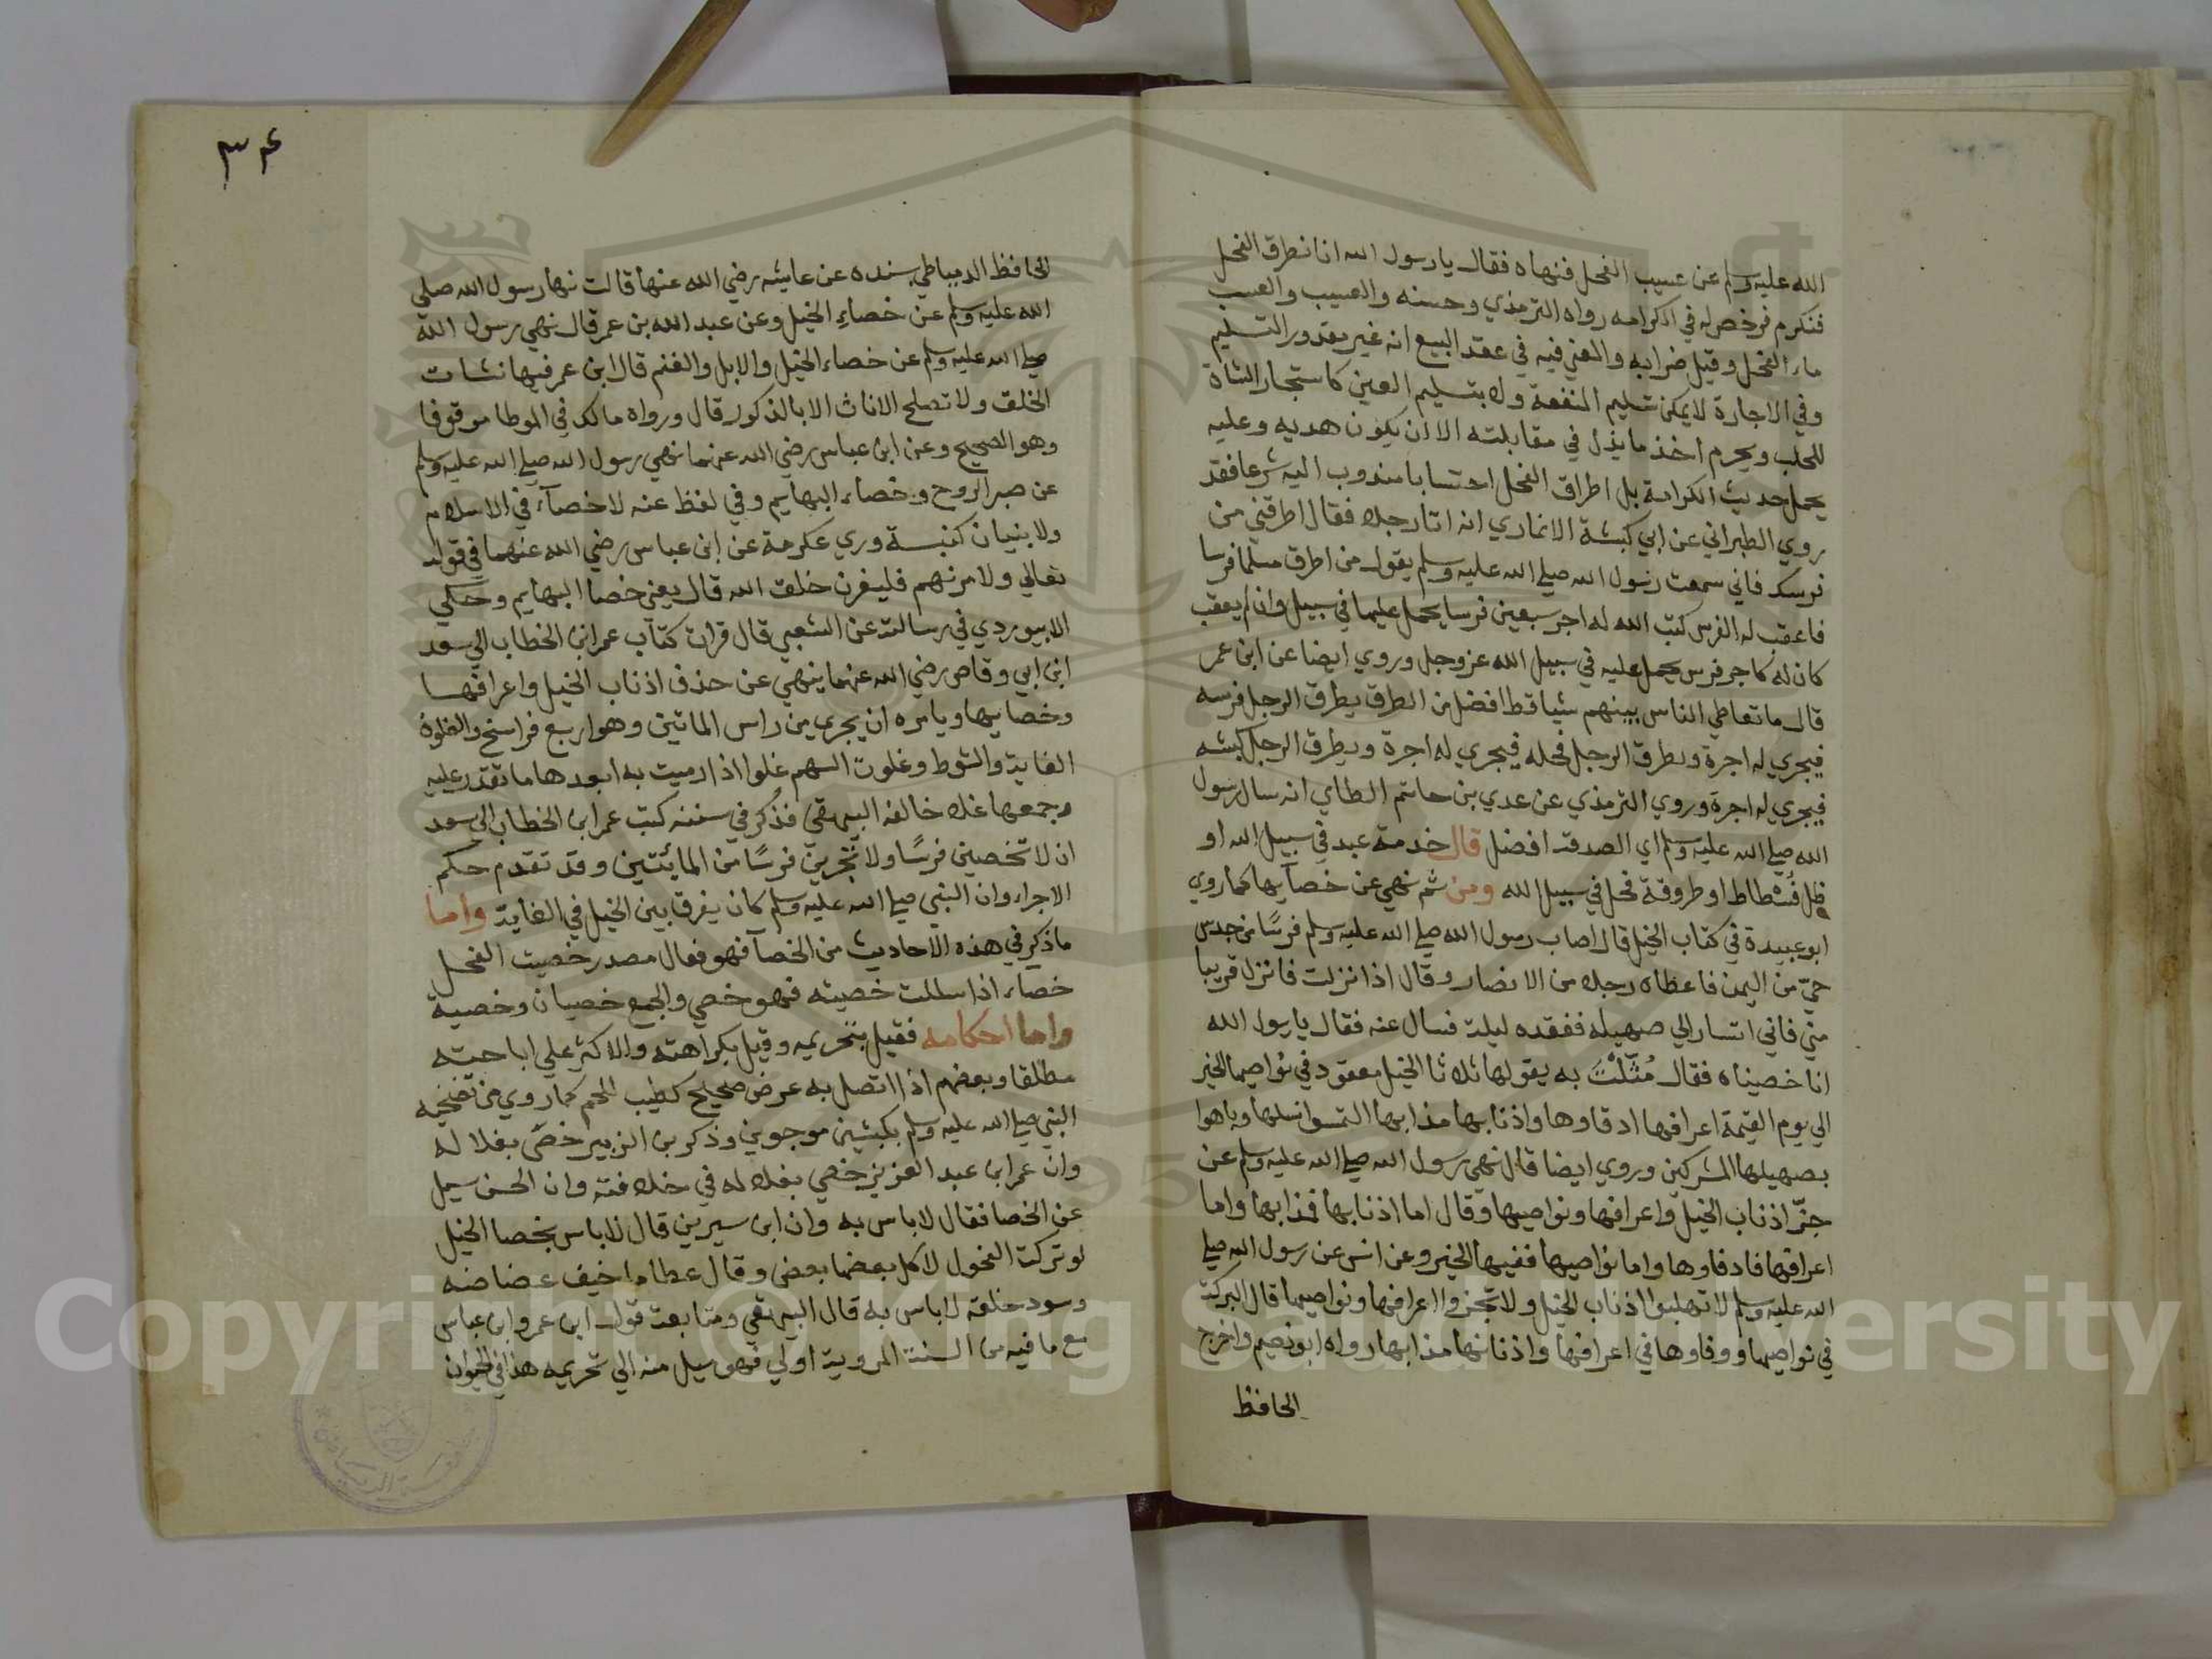 الله عليه وسلم عن عسيب الفحل فنهاه فقال يا رسول الله انا نطرق الفحل
فنكرم فرخص له في الكرامه رواه الترمذي وحسنه والعسيب والعسب
ماء الفحل وقيل ضرابه والمعني فيه في عقد البيع انه غير مقدور التسليم
وفي الاجارة لا يمكن تسليم المنفعة ولا بتسليم العين كاستجار الشاة
للحلب ويحرم اخذ ما يبذل في مقابلته الا ان يكون هديه وعليه
يحمل حديث الكرامة بل اطراق الفحل احتسابا مندوب اليه شرعا فقد
روي الطبراني عن ابي كبشة الانماري انه اتا رجلا فقال اطرقني من
فرسك فاني سمعت رسول الله صلي الله عليه وسلم يقول من اطرق مسلما فرسا
فاعقب له الفرس كتب الله له اجر سبعين فرسا يحمل عليها في سبيل وان لم يعقب
كان له كاجر فرس يحمل عليه في سبيل الله عز وجل وروي ايضا عن ابن عمر
قال ما تعاطي الناس بينهم شيا قط افضل من الطرق يطرق الرجل فرسه
فيجري له اجرة ويطرق الرجل فحله فيجري له اجرة ويطرق الرجل كبشه
فيجري له اجرة وروي الترمذي عن عدي بن حاتم الطاي انه سال رسول
الله صلي الله عليه وسلم اي الصدقة افضل قال خدمة عبد في سبيل الله او
ظل فسطاط او طروقة فحل في سبيل الله ومن ثم نهي عن خصآيها كما روي
ابو عبيدة في كتاب الخيل قال اصاب رسول الله صلي الله عليه وسلم فرسًا من جدس
حيّ من اليمن فاعطاه رجلا من الانصار وقال اذا نزلت فانزل قريبا
مني فاني اتسار الي صهيله ففقده ليلة فسال عنه فقال يا رسول الله
انا خصيناه فقال مُثّلْتَ به يقولها ثلاثا الخيل معقود في نواصيها الخير
الي يوم القيمة اعرافها ادفاوها واذنابها مذابها التمسوا نسلها وباهوا
بصهيلها المشركين وروي ايضا قال نهي رسول الله صلي الله عليه وسلم عن
جزّ اذناب الخيل واعرافها ونواصيها وقال اما اذنابها فمذابها واما
اعرافها فادفاوها واما نواصيها ففيها الخير وعن انس عن رسول الله صلي
الله عليه وسلم لا تهلبوا اذناب الخيل ولا تجزوا اعرافها ونواصيها قال البركة
في نواصيها ودفاوها في اعرافها واذنابها مذابها رواه ابو نعيم واخرج
الحافظ
٣٤
الحافظ الدمياطي بسنده عن عايشه رضي الله عنها قالت نها رسول الله صلي
الله عليه وسلم عن خصاء الخيل وعن عبد الله بن عمر قال نهي رسول الله
صلي الله عليه وسلم عن خصاء الخيل والابل والغنم قال ابن عمر فيها نشات
الخلق ولا تصلح الاناث الا بالذكور قال ورواه مالك في الموطا موقوفا
وهو الصحيح وعن ابن عباس رضي الله عنهما نهي رسول الله صلي الله عليه وسلم
عن صبر الروح وخصاء البهايم وفي لفظ عنه لا خصآء في الاسلام
ولا بنيان كنيسة وري عكرمة عن ابن عباس رضي الله عنهما في قوله
تعالي ولامرنهم فليغرن خلق الله قال يعني خصا البهايم وحكي
الابيوردي في رسالته عن الشعبي قال قرات كتاب عمر ابن الخطاب الي سعد
ابن ابي وقاص رضي الله عنهما ينهي عن حذف اذناب الخيل واعرافها
وخصايها ويامره ان يجري من راس الماتين وهو اربع فراسخ والغلوة
الغاية والشوط وغلوت السهم غلوا اذا رميت به ابعد ها ما تقدر عليه
وجمعها غلا خالفه البيهقي فذكر في سننه كتب عمر ابن الخطاب الي سعد
ان لا تخصين فرسًا ولا تجرين فرسًا من المائتين وقد تقدم حكم
الاجراء وان النبي صلي الله عليه وسلم كان يفرق بين الخيل في الغاية واما
ما ذكر في هذه الاحاديث من الخصآ فهو فعال مصدر خصيت الفحل
خصاء اذا سللت خصيته فهو خصي والجمع خصيان وخصية
واما احكامه فقيل بتحريمه وقيل بكراهته والاكثر علي اباحته
مطلقا وبعضهم اذا اتصل به عرض صحيح كطيب اللحم كما روي من تضحيه
النبي صلي الله عليه وسلم بكبشين موجوين وذكر بن الزبير خصّى بغلا له
وان عمر ابن عبد العزيز خصي بغلا له في خلافته وان الحسن سيل
عن الخصا فقال لا باس به وان ابن سيرين قال لا باس بخصا الخيل
لو تركت الفحول لاكل بعضها بعض وقال عطا ما خيف عضاضه
وسود خلقه لا باس به قال البيهقي ومتابعة قول ابن عمر وابن عباس
مع ما فيه من السنة المروية اولي فهو سيل منه الي تحريمه هذا في الحيوان